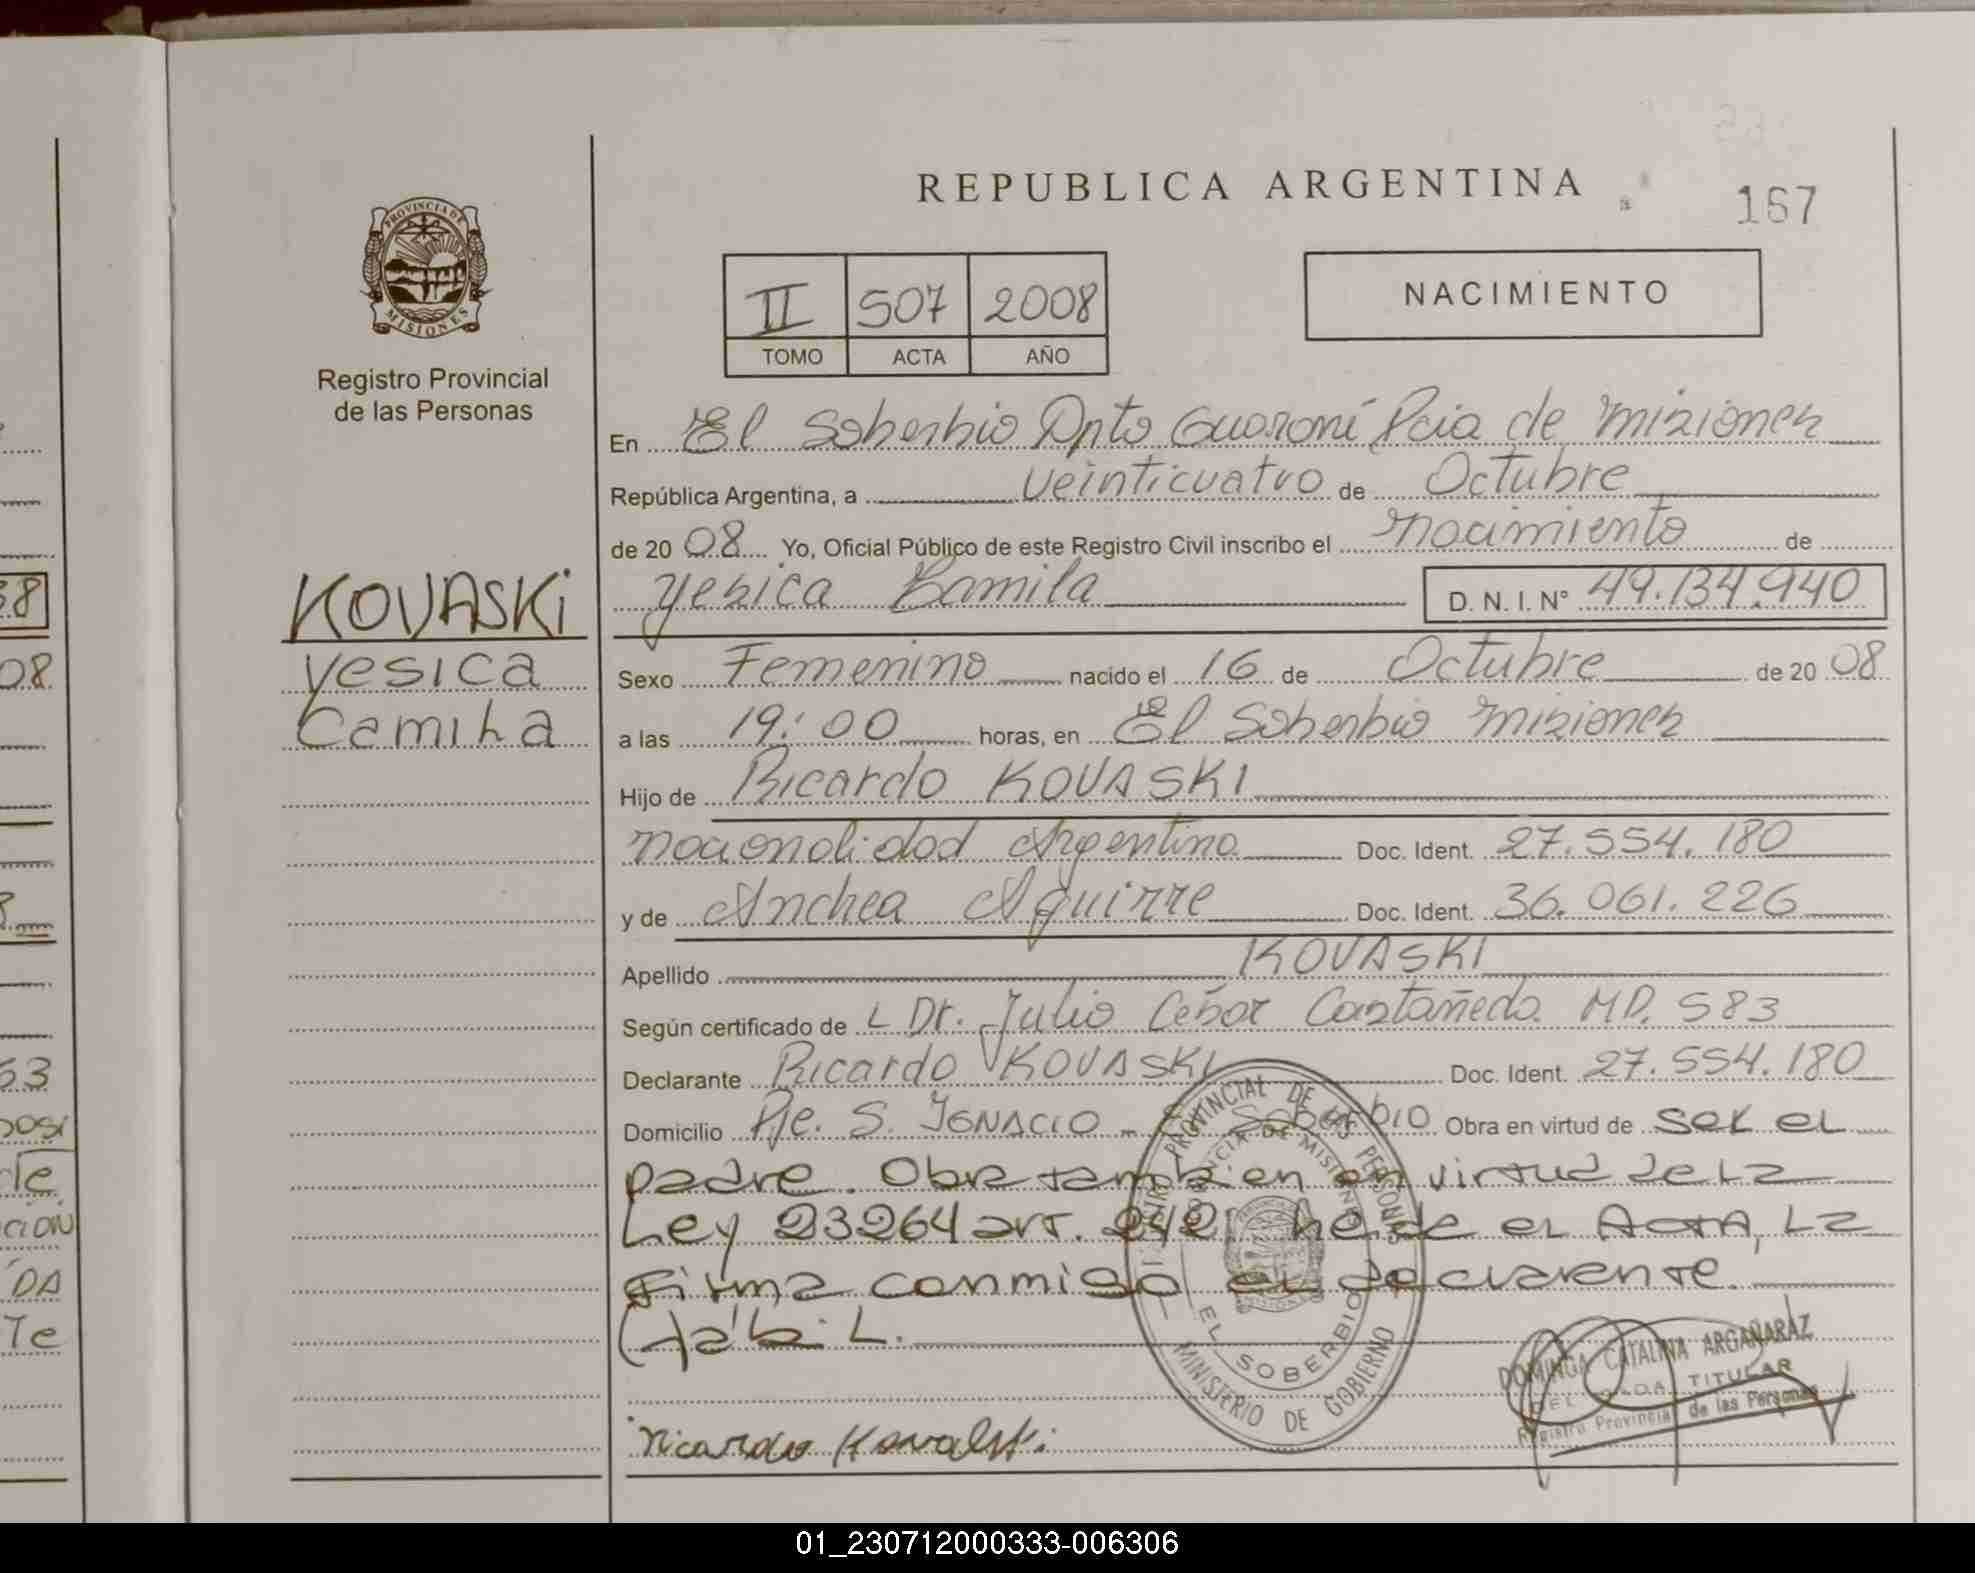 REPUBLICA ARGENTINA
167
PROVINCIA DE
MISIONES
Registro Provincial
de las Personas
II 507 2008
TOMO ACTA AÑO
NACIMIENTO
En El Soberbio Dpto Guaraní Pcia de Misiones
República Argentina, a veinticuatro de Octubre
de 2008 Yo, Oficial Público de este Registro Civil inscribo el nacimiento de
Yesica Camila D. N. I. Nº 49.134.940
KOVASKi
Yesica
Camila
Sexo Femenino nacido el 16 de Octubre de 2008
a las 19:00 horas, en El Soberbio Misiones
Hijo de Ricardo KOVASKI
nacionalidad Argentina Doc. Ident. 27.554.180
y de Aguirre Doc. Ident. 36.061.226
Apellido KOVASKI
Según certificado de L Dr. Julio Cesar Castañeda MP. 583
Declarante Ricardo KOVASKI Doc. Ident. 27.554.180
Domicilio Pje. S. IGNACIO - Soberbio Obra en virtud de ser el
padre. Obra tambien en virtud de La
Ley 23264 art. 242 he de el Acta, La
firma conmigo el declarente.
Ricardo Kovalski
REGISTRO PROVINCIAL DE LAS PERSONAS
PROVINCIA DE MISIONES
EL SOBERBIO
MINISTERIO DE GOBIERNO
DOMINGA CATALINA ARGAÑARAZ
TITULAR
Registro Provincial de las Personas
38
08
53
de
CION
DA
Te
01_230712000333-006306